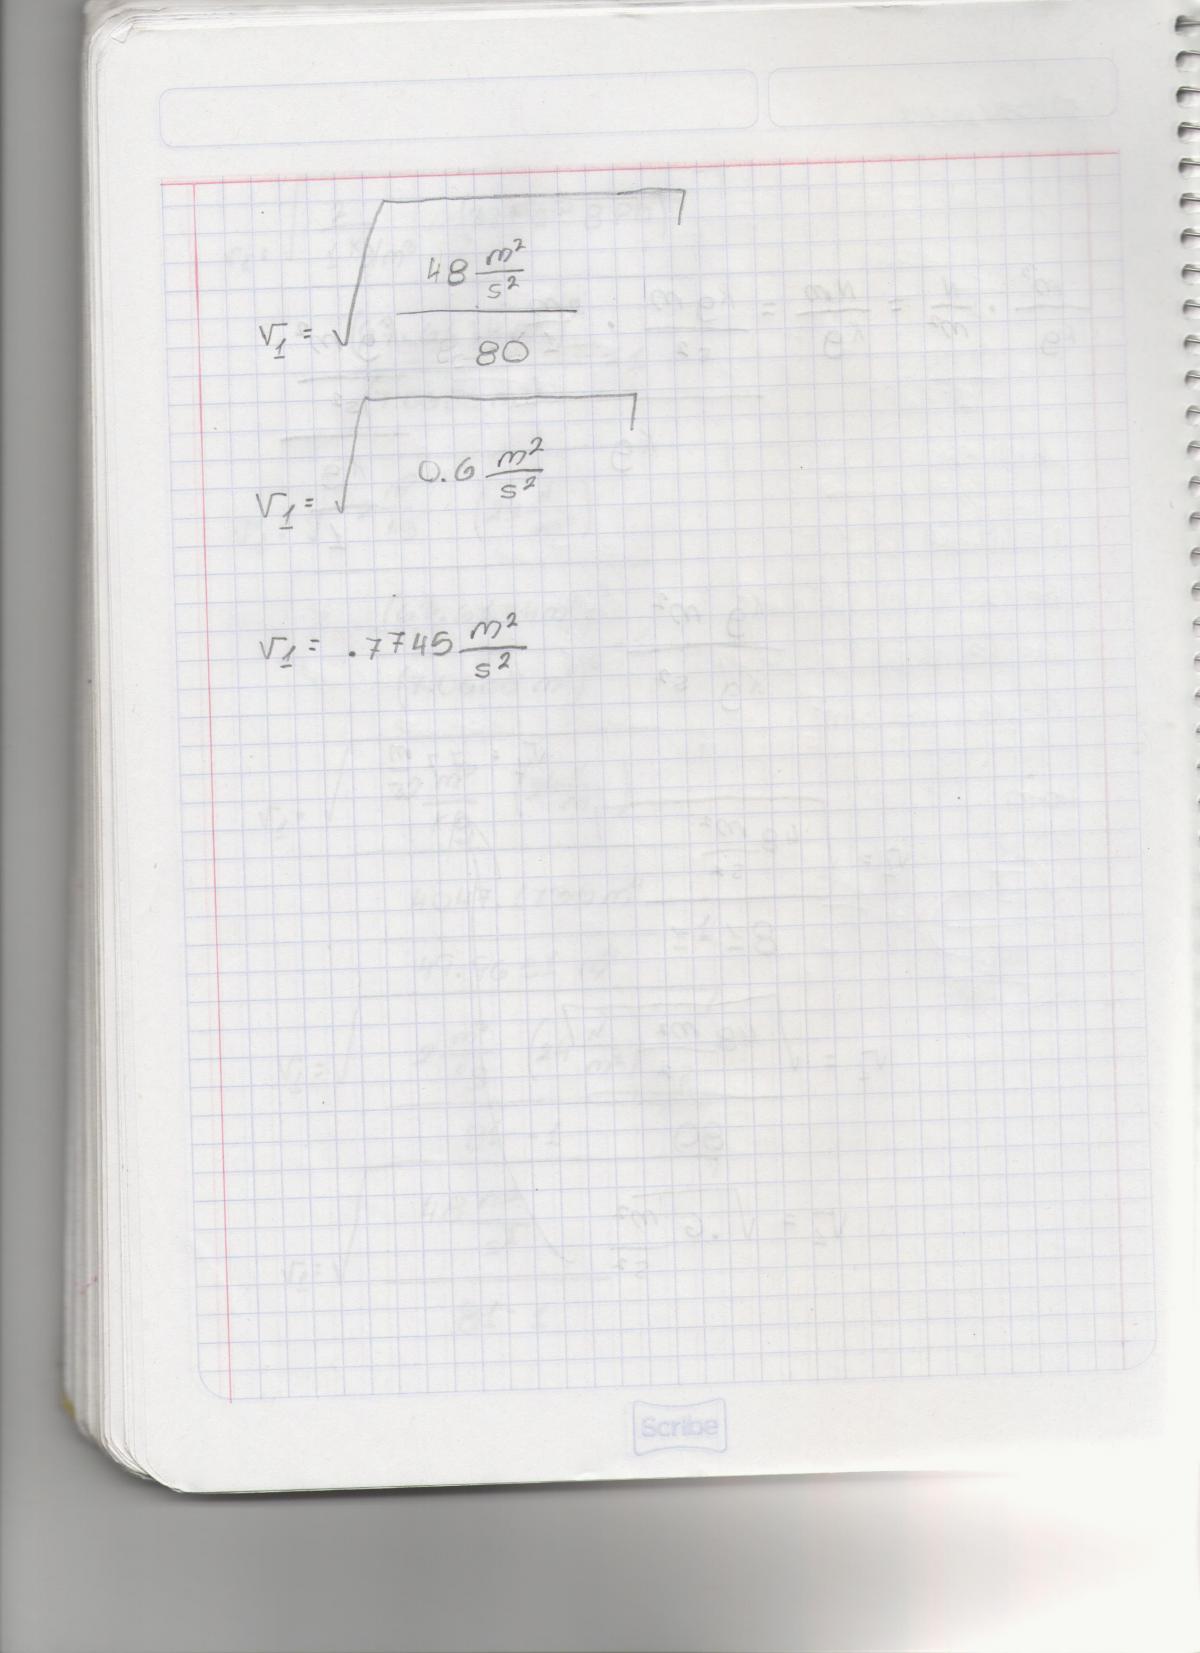 v₁ = √(48 m²/s² / 80)
v₁ = √(0.6 m²/s²)
v₁ = .7745 m²/s²
Scribe